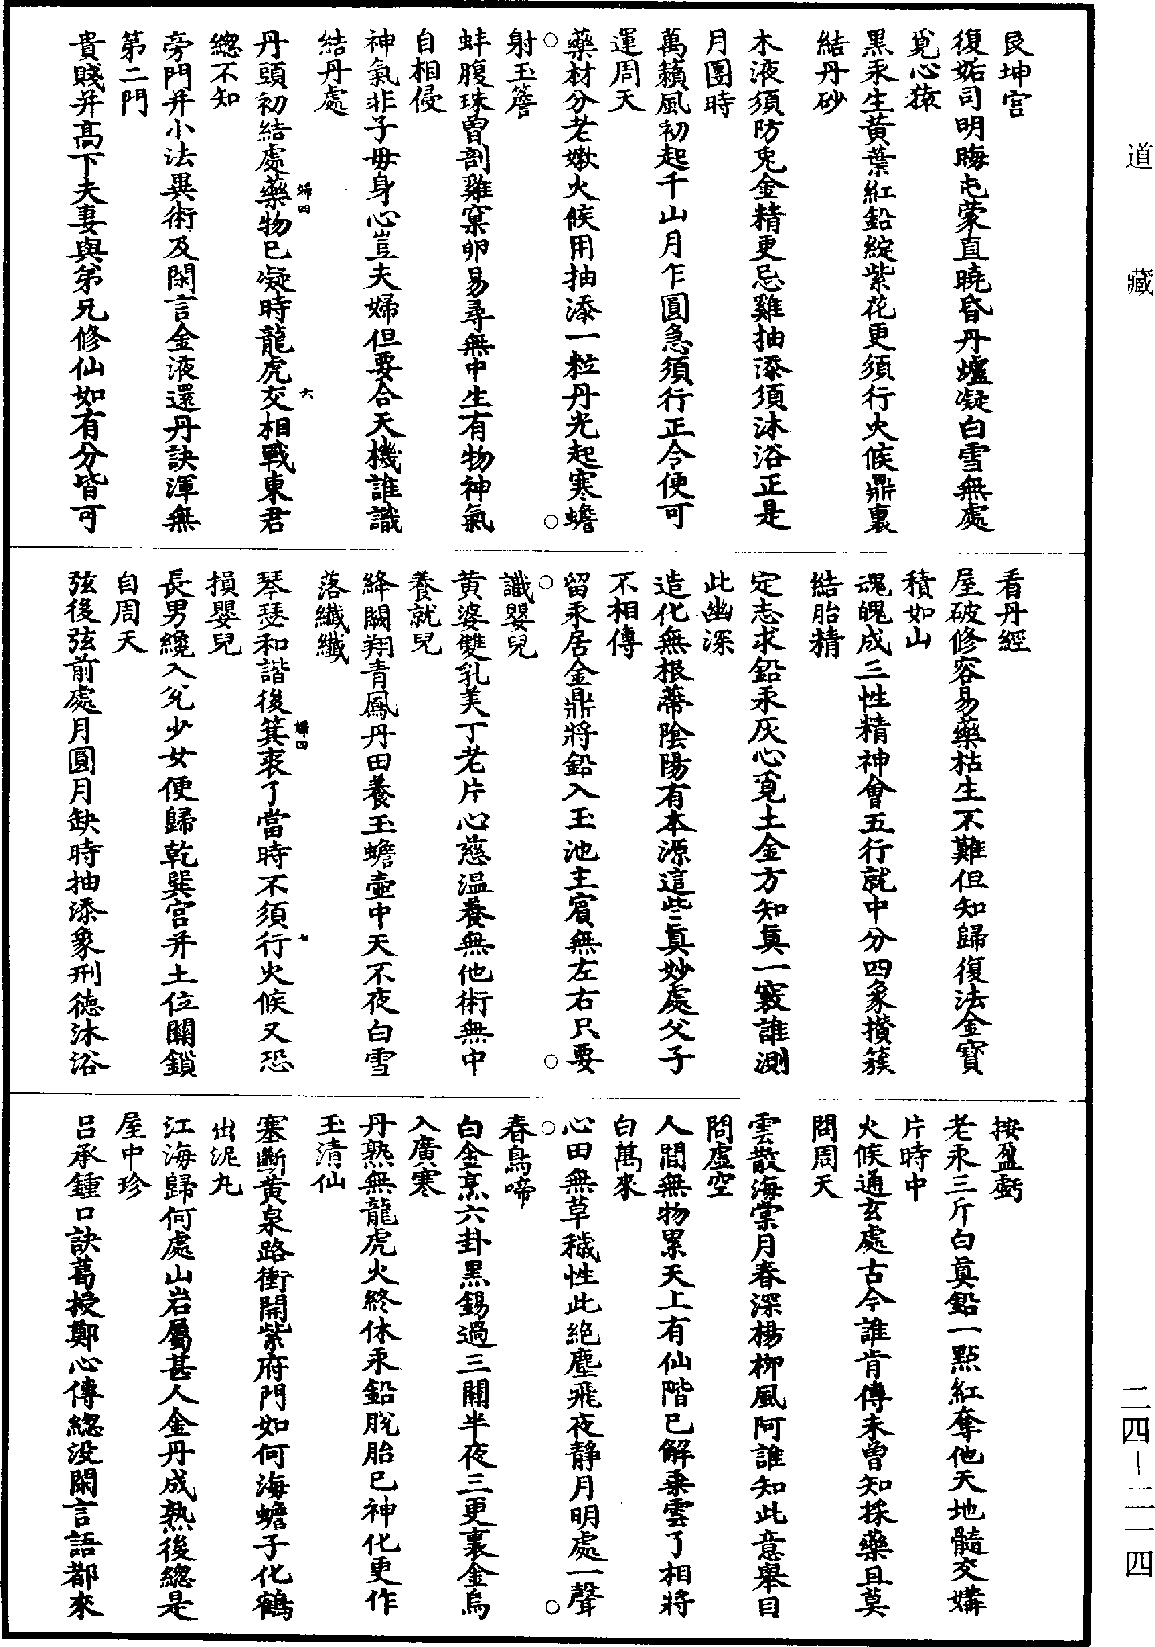 道藏
艮坤宮
復姤司明晦屯蒙直曉昏丹爐凝白雪無處
覓心猿
黑汞生黃葉紅鉛綻紫花更須行火候鼎裏
結丹砂
木液須防兎金精更忌雞抽添須沐浴正是
月圓時
萬籟風初起千山月乍圓急須行正令便可
運周天
藥材分老嫩火候用抽添一粒丹光起寒蟾
射玉簷
蚌腹珠曾剖雞窠卵易尋無中生有物神氣
自相侵
神氣非子母身心豈夫婦但要合天機誰識
結丹處
丹頭初結處藥物已凝時龍虎交相戰東君
總不知
歸四
六
旁門并小法異術及閑言金液還丹訣渾無
第二門
貴賤并高下夫妻與弟兄修仙如有分皆可
看丹經
屋破修容易藥枯生不難但知歸復法金寶
積如山
魂魄成三性精神會五行就中分四象攢簇
結胎精
定志求鉛汞灰心覓土金方知眞一竅誰測
此幽深
造化無根蒂陰陽有本源這些眞妙處父子
不相傳
留汞居金鼎將鉛入玉池主賓無左右只要
識嬰兒
黃婆雙乳美丁老片心慈溫養無他術無中
養就兒
絳闕翔青鳳丹田養玉蟾壺中天不夜白雪
落纖纖
琴瑟和諧後箕裘了當時不須行火候又恐
損嬰兒
歸四
七
長男纔入兊少女便歸乾巽宮并土位關鎖
自周天
弦後弦前處月圓月缺時抽添象刑德沐浴
按盈虧
老汞三斤白眞鉛一點紅奪他天地髓交媾
片時中
火候通玄處古今誰肯傳未曾知採藥且莫
問周天
雲散海棠月春深楊柳風阿誰知此意舉目
問虛空
人間無物累天上有仙階已解乘雲了相將
白萬來
心田無草穢性此絕塵飛夜靜月明處一聲
春鳥啼
白金烹六卦黑錫過三關半夜三更裏金烏
入廣寒
丹熟無龍虎火終休汞鉛脫胎已神化更作
玉清仙
塞斷黃泉路衝開紫府門如何海蟾子化鶴
出泥丸
江海歸何處山岩屬甚人金丹成熟後總是
屋中珍
呂承鍾口訣葛授鄭心傳總沒閑言語都來
二四—二一四